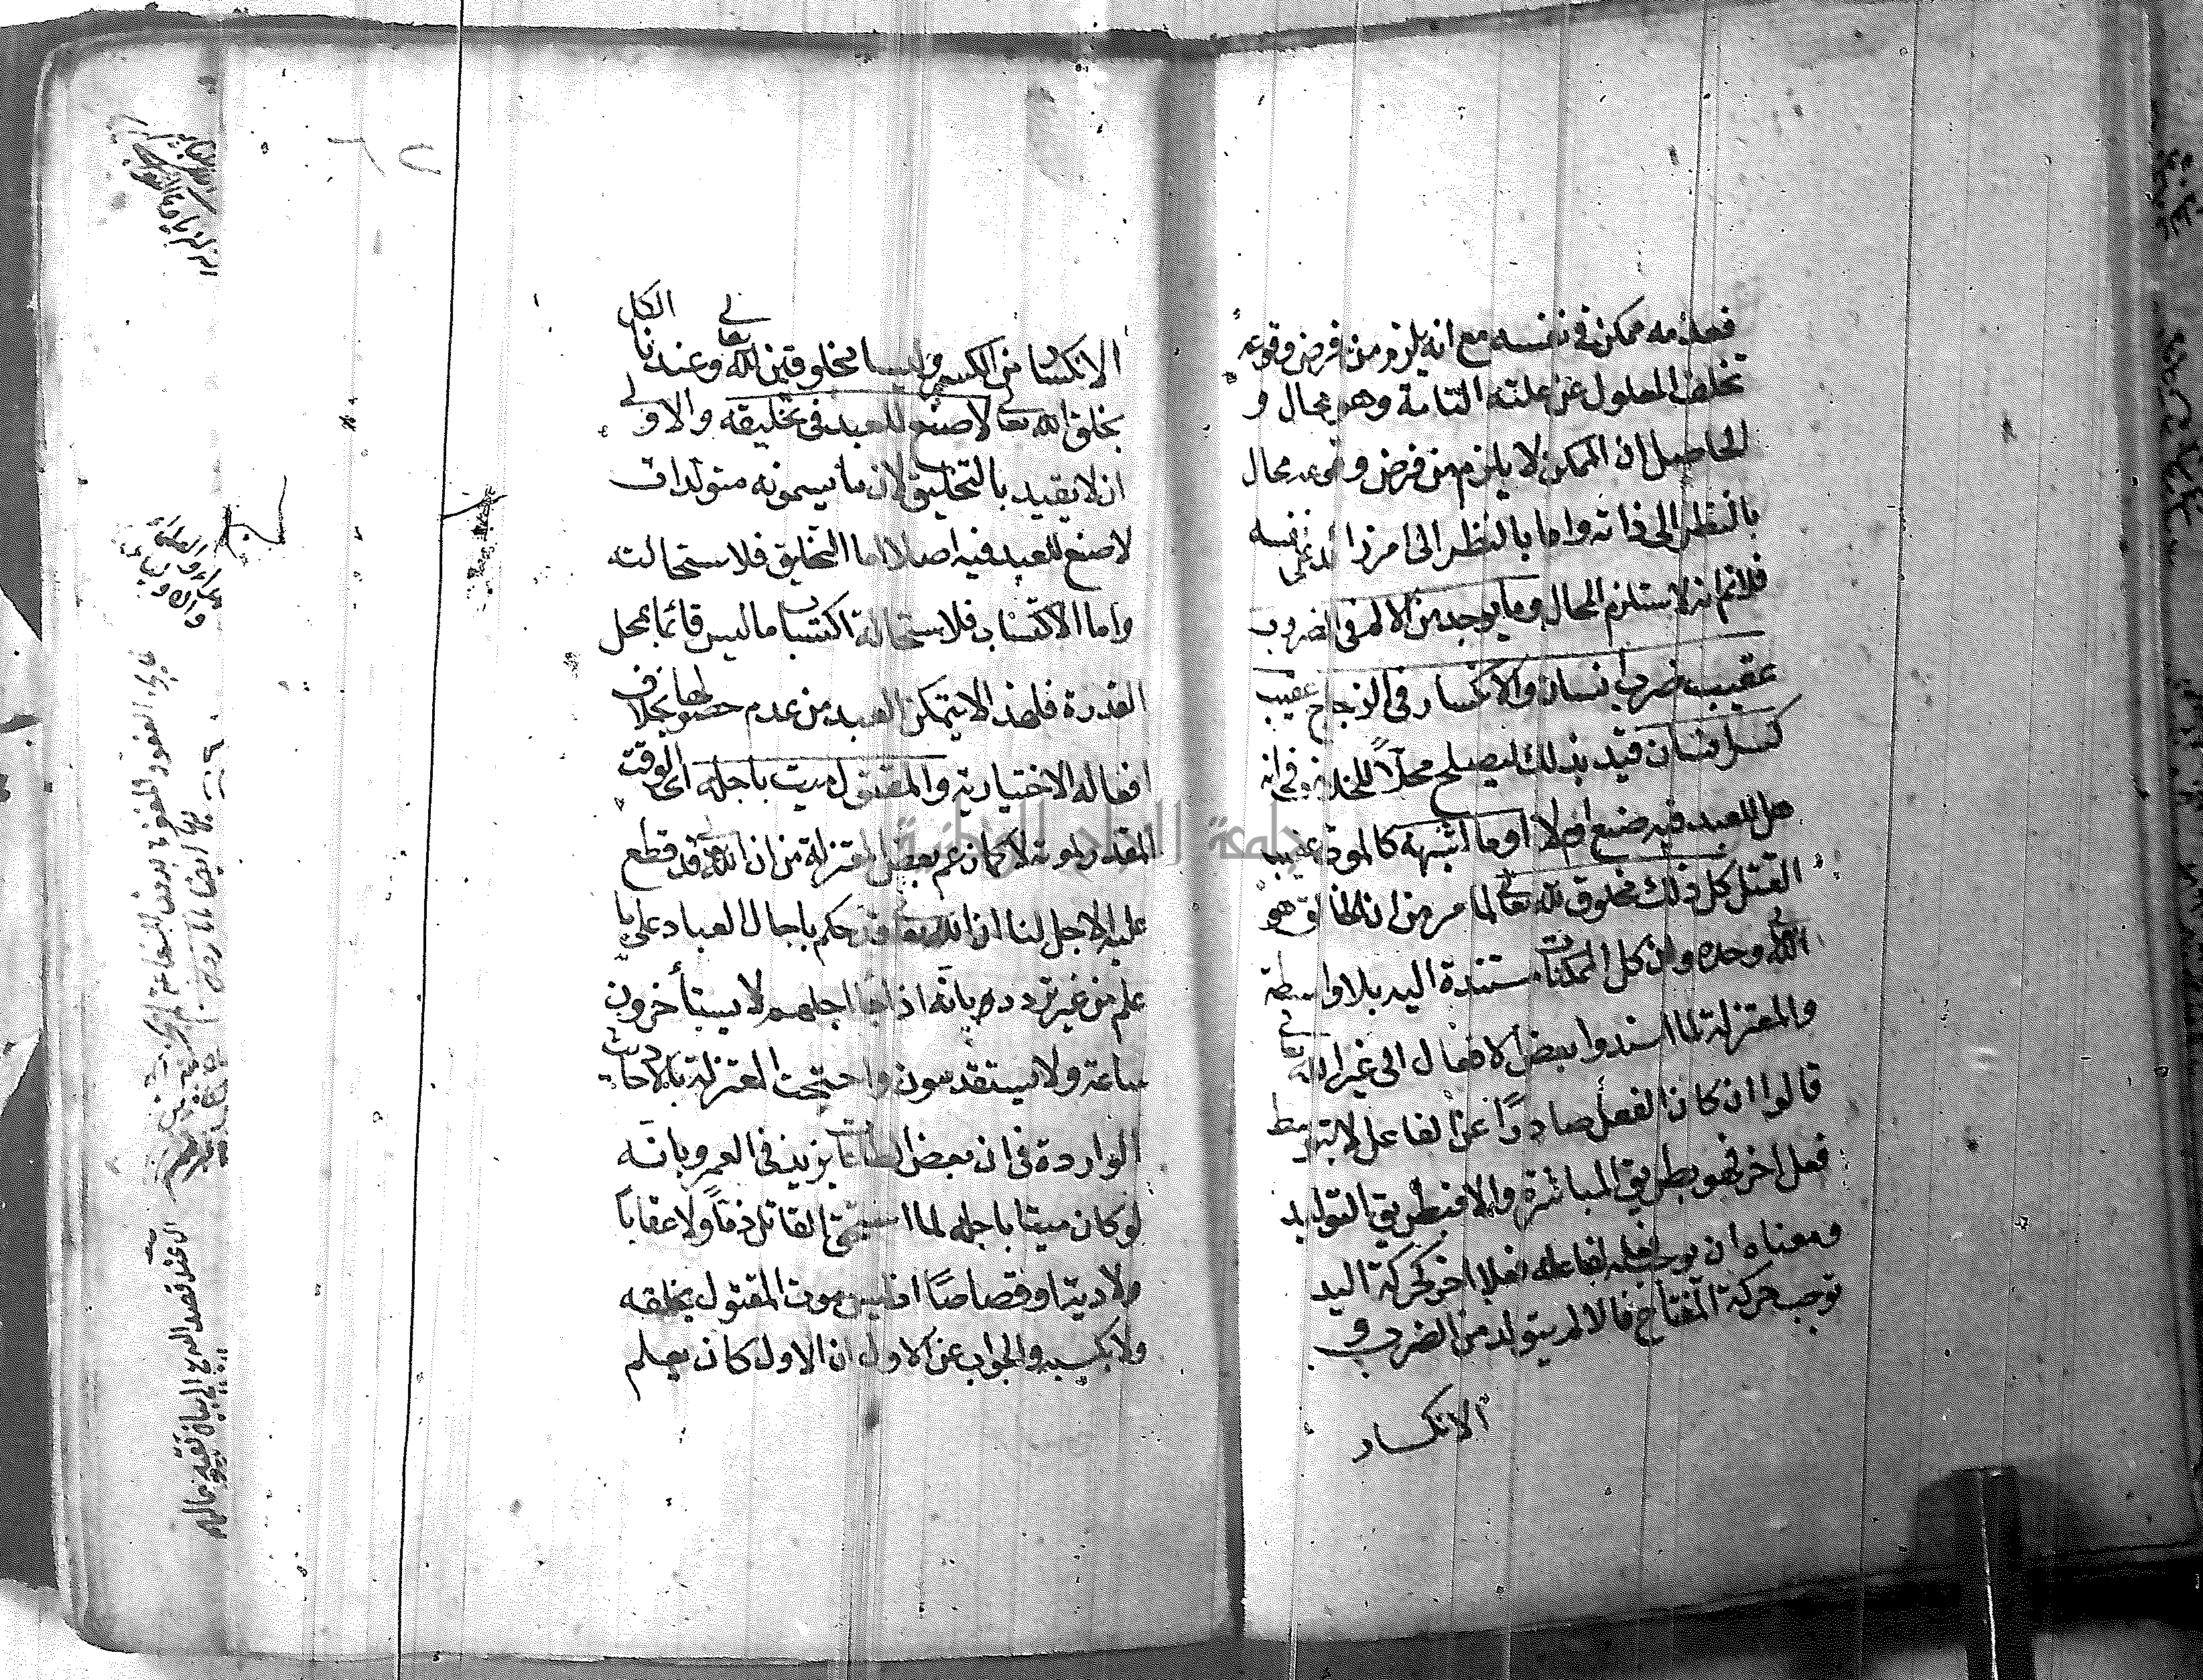 فعدمه ممكن في نفسه مع انه يلزم من فرض وقوعه
تخلف المعلول عن علته التامة وهو محال و
الحاصل ان الممكن لا يلزم من فرض وقوعه محال
بالنظر الى ذاته واما بالنظر الى امر زائد على نفسه
فلانم انه لا يستلزم المحال وما يوجد من الالم في المضروب
عقيب ضرب انسان والانكسار في الزجاج عقيب
كسر انسان قيد بذلك ليصلح محلاً للخلاف في انه
هل للعبد فيه صنع ام لا او ما اشبهه كالموت عقيب
القتل كل ذلك مخلوق لله تعالى لما مر من ان الخالق هو
الله تعالى وحده وان كل الممكنات مستندة اليه بلا واسطة
والمعتزلة لما اسندوا بعض الافعال الى غير الله تعالى
قالوا ان كان الفعل صادرًا عن الفاعل لا بتوسط
فعل اخر فهو بطريق المباشرة والا فبطريق التوليد
ومعناه ان يوجب فعل لفاعله فعلا اخر كحركة اليد
توجب حركة المفتاح فالالم يتولد من الضرب و
الانكسار
الانكسار من الكسر وليسا مخلوقين لله تعالى وعندنا الكل
بخلق الله تعالى لا صنع للعبد في تخليقه والاولى
ان لا يقيد بالتخليق لان ما يسمونه متولدات
لا صنع للعبد فيه اصلا اما التخليق فلاستحالته
واما الاكتساب فلاستحالة اكتساب ما ليس قائما بمحل
القدرة فلهذا لا يتمكن العبد من عدم حصولها بخلاف
افعاله الاختيارية والمقتول ميت باجله اى الوقت
المقدر لموته لا كما زعم بعض المعتزلة من ان الله تعالى قد قطع
عليه الاجل لنا ان الله تعالى قد حكم باجال العباد على ما
علم من غير تردد وبانه اذا جا اجلهم لا يستأخرون
ساعة ولا يستقدمون واحتجت المعتزلة بالاحاديث
الواردة في ان بعض الطاعات يزيد في العمر وبانه
لو كان ميتا باجله لما استحق القاتل ذمًا ولا عقابًا
ولا دية او قصاصًا اذ ليس موت المقتول بخلقه
ولا بكسبه والجواب عن الاول ان الاول كان يعلم